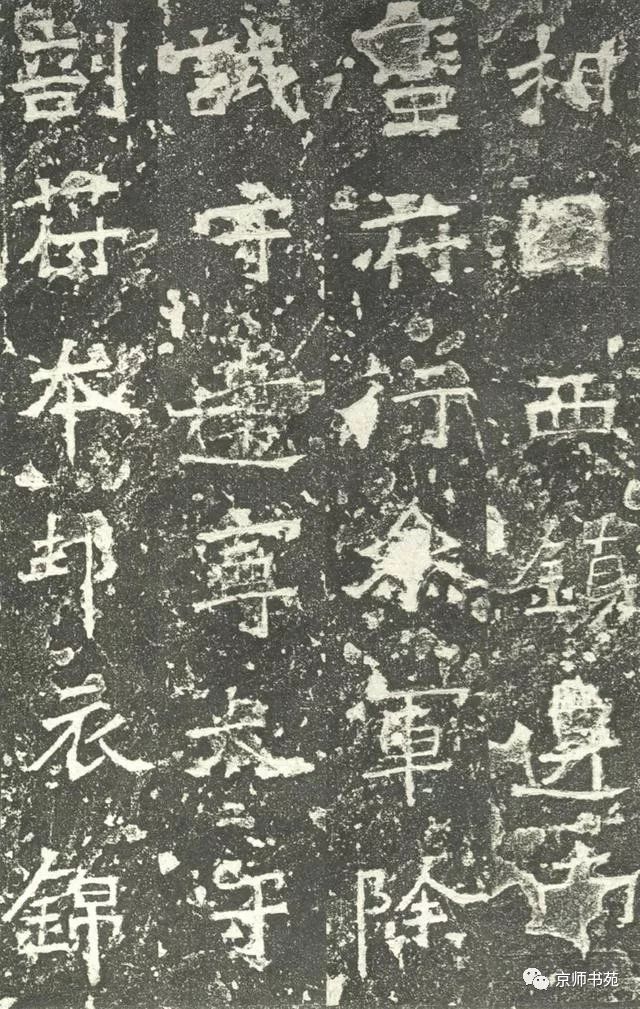 相西鎮遷南
蠻府行參軍除
試守建寧太守
剖符本邦衣錦
京师书苑